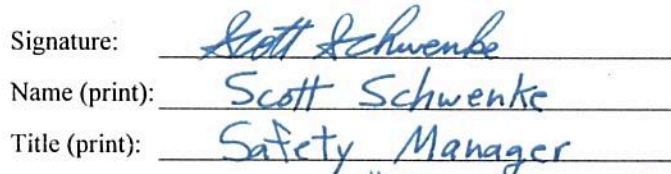 Signature: Scott Schwenke
Name (print): Scott Schwenke
Title (print): Safety Manager